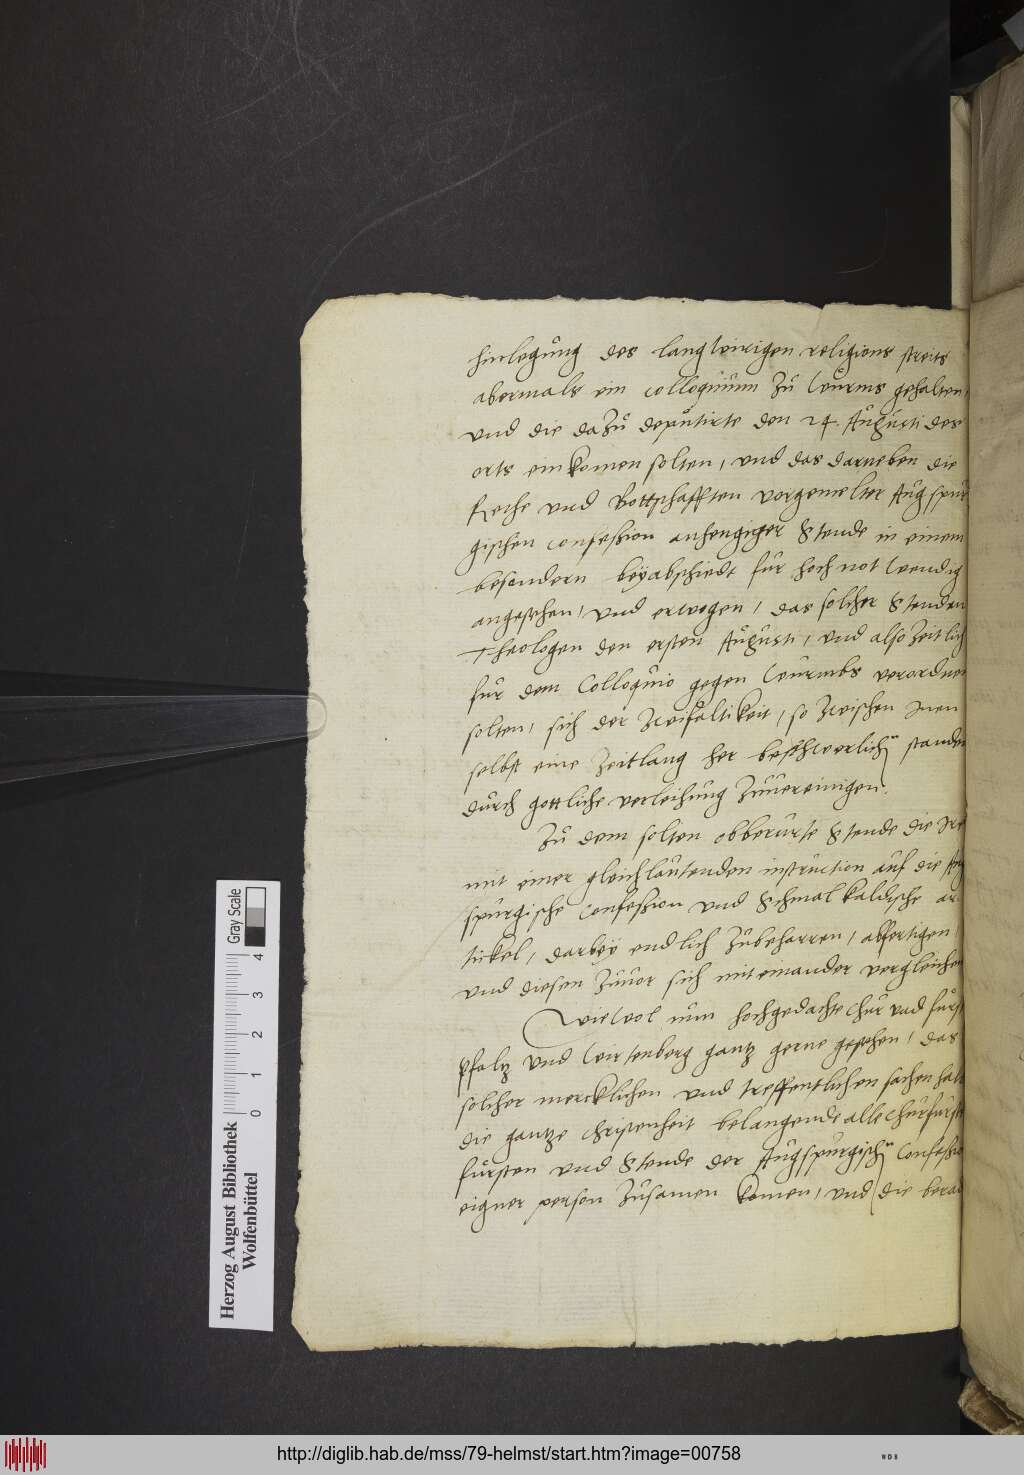 hinlegung des langwirigen religions streits
abermals ein colloquium zu Wurms gehalten,
und die dazu deputirte den 24. Augusti des
orts einkomen solten, und das darneben die
Rethe und Bottschafften vorgemelter Augspur
gischen confession anhengiger Stende in einem
besondern beyabschiedt fur hoch not wendig
angesehen, und erwogen, das solcher Stenden
Theologen den ersten Augusti, und also zeitlich
fur dem Colloquio gegen Wurmbs verordnet
solten, sich der zweifaltikeit, so zwischen inen
selbst eine zeitlang her beschwerlich standen
durch gottliche verleihung zuuereinigen.
Zu dem solten obberurte Stende die ire
mit einer gleichlautenden instruction auf die Aug
spurgische confession und Schmalkaldische ar
tickel, darbey endlich zubeharren, abfertigen,
und diesen zuuor sich mit einander vergleichen
Wiewol nun hochgedachte Chur und furst
Pfaltz und Wirtenberg gantz gerne gesehen, das
solcher mercklichen und treffentlichen sachen halb
die gantze christenheit belangende alle Churfurst
fursten und Stende der Augspurgisch Confessio
eigner person zusamen komen, und die berat
Herzog August Bibliothek
Wolfenbüttel
0 1 2 3 4
Gray Scale
http://diglib.hab.de/mss/79-helmst/start.htm?image=00758
WDB